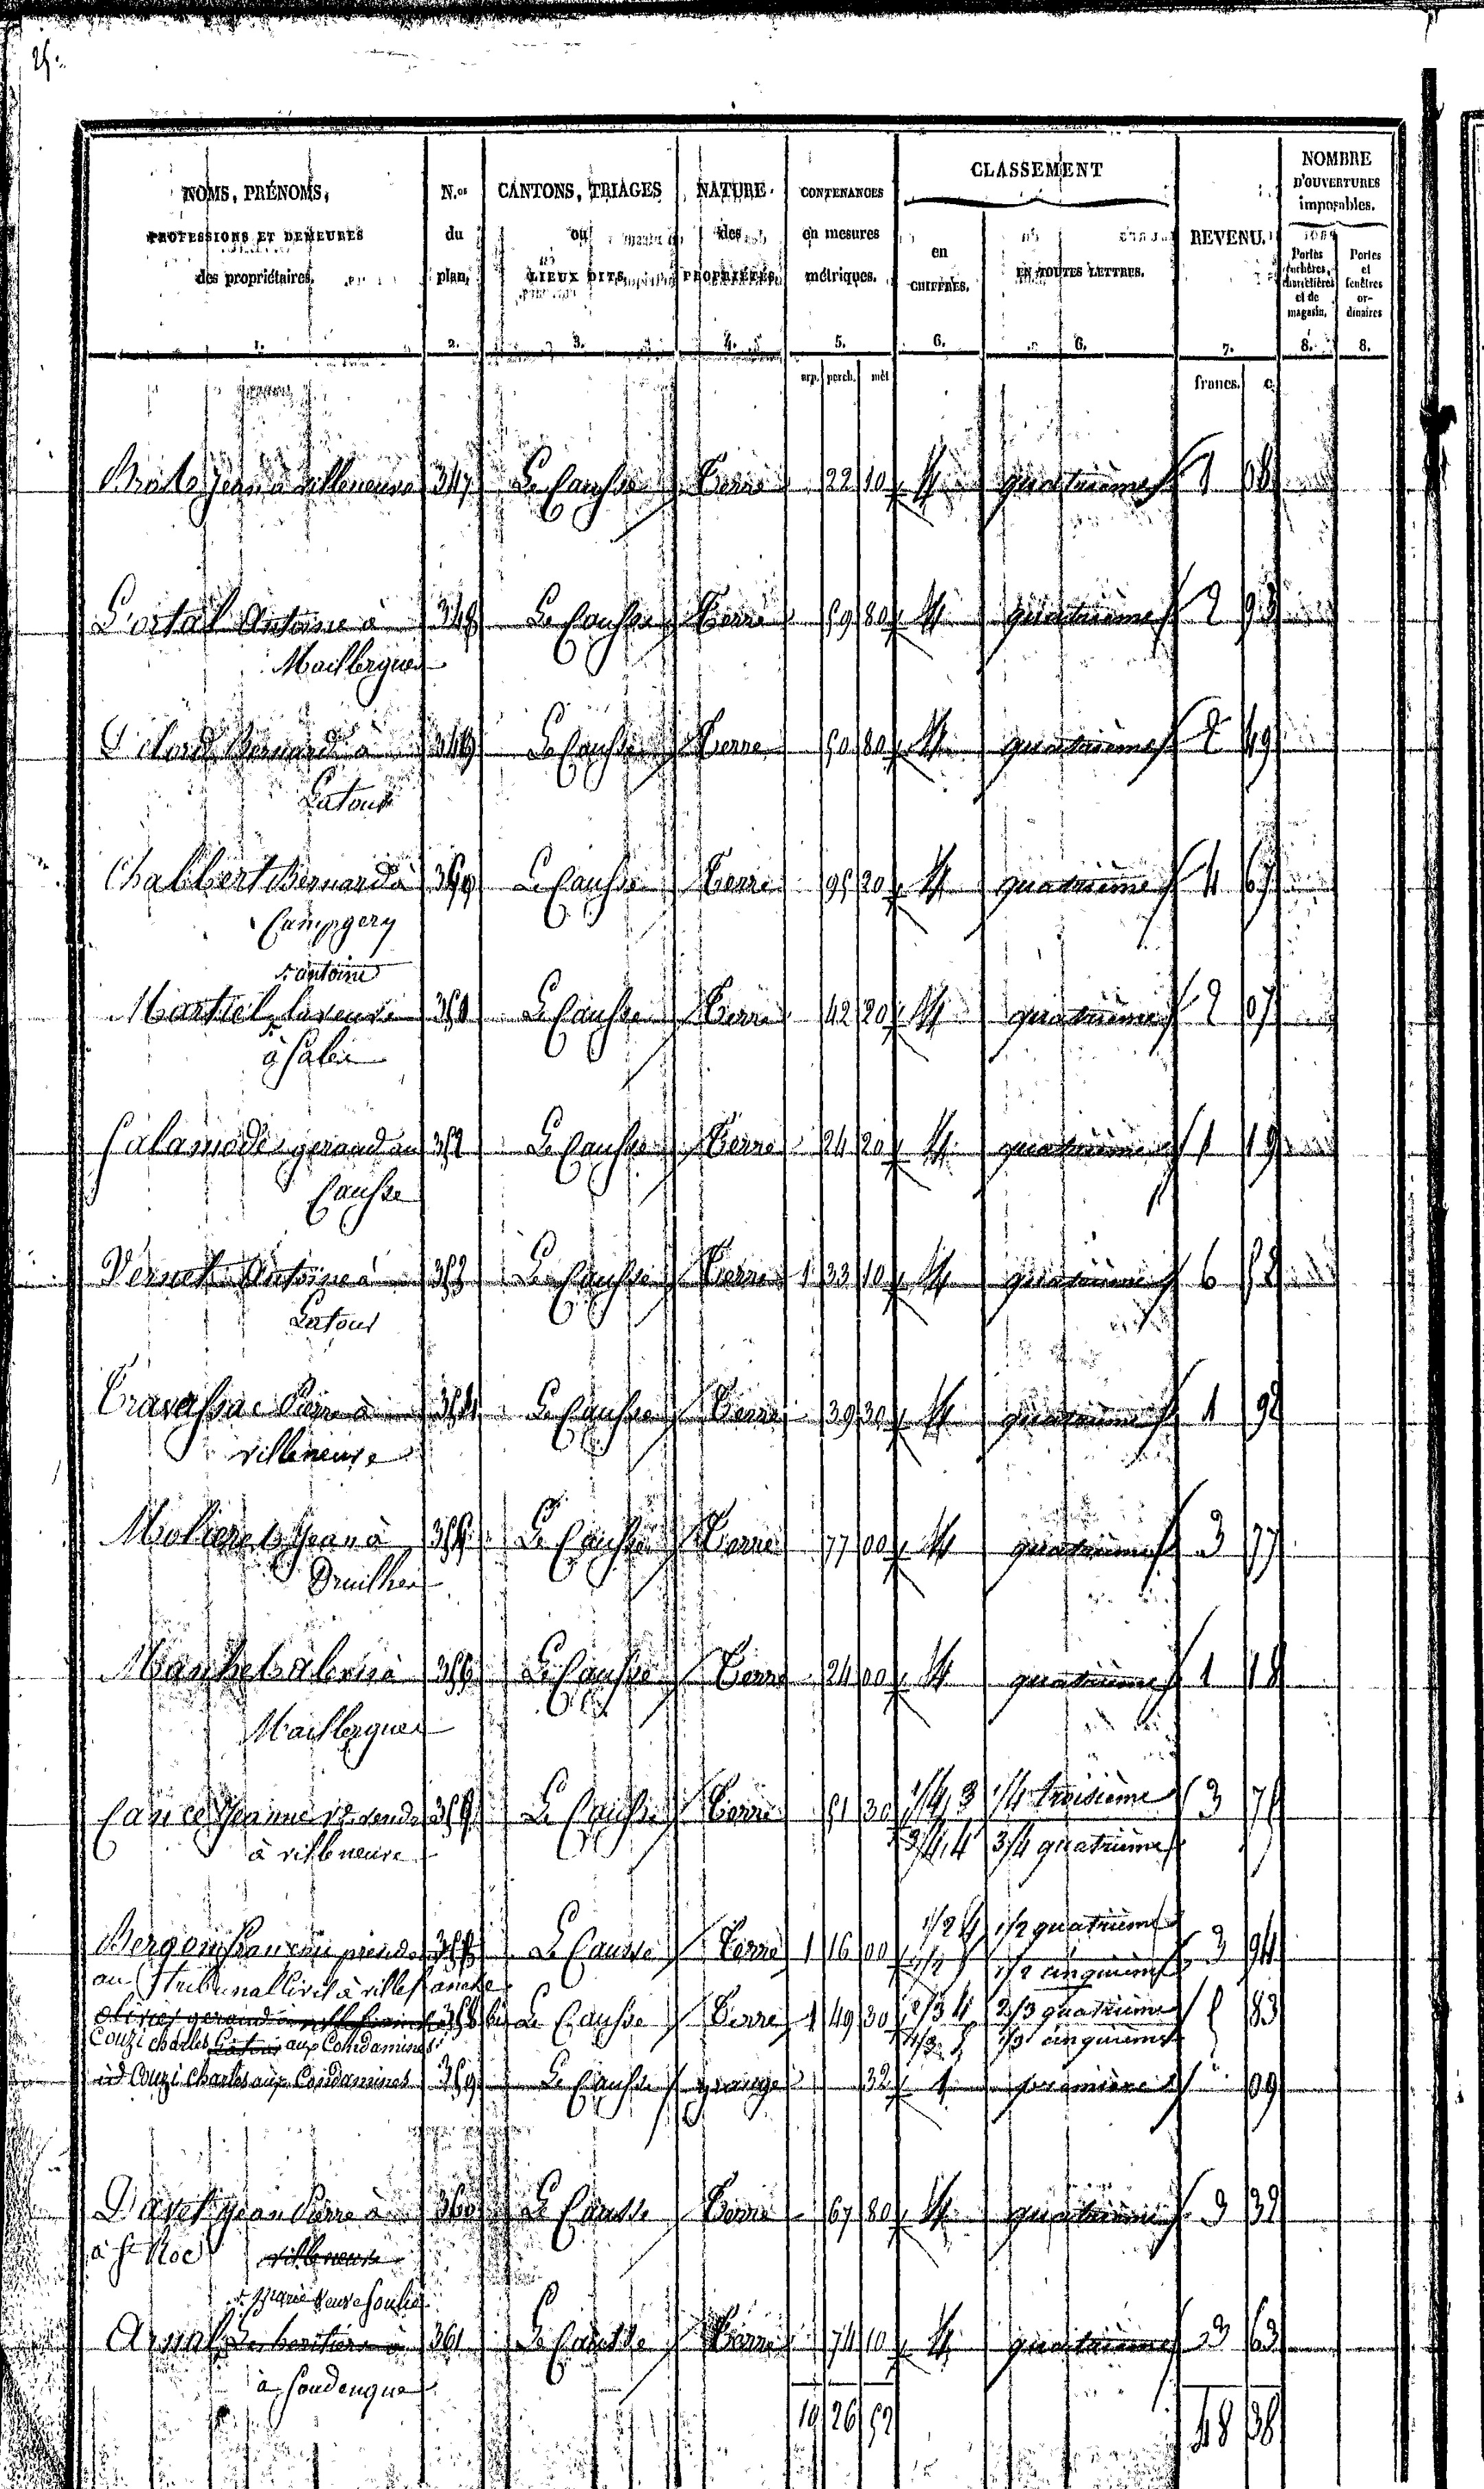 25.
NOMS, PRÉNOMS, PROFESSIONS ET DEMEURES des propriétaires. 1.
N.os du plan. 2.
CANTONS, TRIAGES ou LIEUX DITS. 3.
NATURE des PROPRIÉTÉS. 4.
CONTENANCES en mesures métriques. 5.
CLASSEMENT
en CHIFFRES. 6.
EN TOUTES LETTRES. 6.
REVENU. 7.
NOMBRE D'OUVERTURES imposables.
Portes cochères, charretières et de magasin. 8.
Portes et fenêtres ordinaires 8.
arp. perch. mèt francs. c.
Jean à villeneuve 347 Le Causse Terre 22 10 4 quatrième 1 08
Portal Antoine à 348 Le Causse Terre 59 80 4 quatrième 2 93
Mailbergues
Bernard à 349 Le Causse Terre 50 80 4 quatrième 2 49
Latour
Chalbert Bernard à 350 Le Causse Terre 95 20 4 quatrième 4 67
Campgery
antoine
la veuve 351 Le Causse Terre 42 20 4 quatrième 2 07
à Salés
Calamode geraud au 352 Le Causse Terre 24 20 4 quatrième 1 19
Causse
Vernet Antoine à 353 Le Causse Terre 1 33 10 4 quatrième 6 52
Latour
Travassac Pierre à 354 Le Causse Terre 39 30 4 quatrième 1 92
villeneuve
Molieres Jean à 355 Le Causse Terre 77 00 4 quatrième 3 77
Druilhes
à 356 Le Causse Terre 24 00 4 quatrième 1 18
Mailbergues
Cance Jeanne 357 Le Causse Terre 51 30 1/4 3 1/4 troisième 3 75
à villeneuve 3/4 4 3/4 quatrième
1/2 4 1/2 quatrième
Bergon 358 Le Causse Terre 1 16 00 1/2 5 1/2 cinquième 3 94
au Tribunal Civil à villefranche
geraud 358 bis Le Causse Terre 1 49 30 2/3 4 2/3 quatrième 5 83
Couzi charles Latour aux Condamines 1/3 5 1/3 cinquième
id Couzi Charles aux Condamines 359 Le Causse grange 32 1 première " 09
Jean Pierre à 360 Le Causse Terre 67 80 4 quatrième 3 32
à St Roc villeneuve
Marie veuve Soulié
Arnal Les heritiers à 361 Le Causse Terre 74 10 4 quatrième 3 63
à Foudengue
10 26 52 48 38